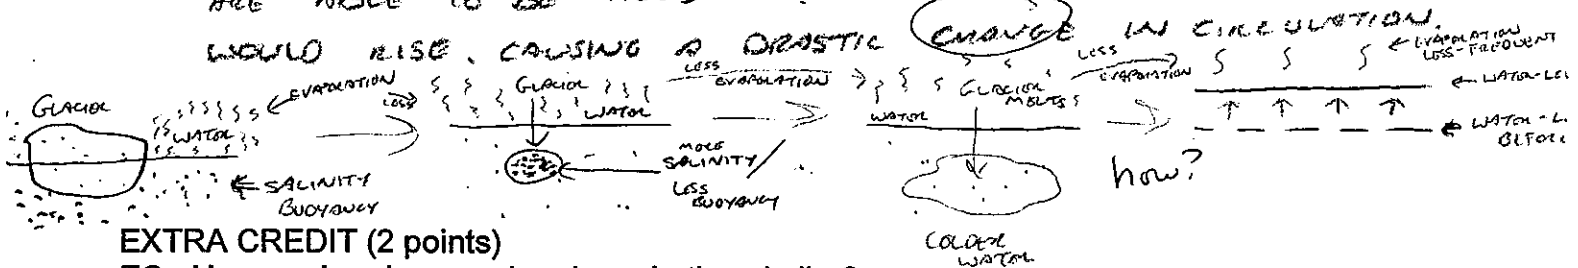 WOULD RISE, CAUSING A DRASTIC CHANGE IN CIRCULATION.
GLACIER
WATER
EVAPORATION
SALINITY
BUOYANCY
LESS
GLACIER
WATER
MORE
SALINITY/
LESS
BUOYANCY
LESS
EVAPORATION
WATER
GLACIER
MELTS
COLDER
WATER
LESS
EVAPORATION
EVAPORATION
LESS-FREQUENT
WATER-LE
WATER-L
BEFORE
how?
EXTRA CREDIT (2 points)